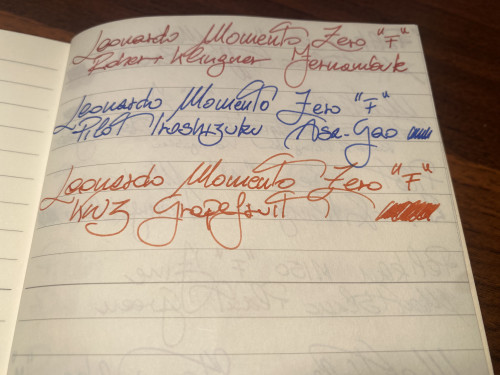 Leonardo Momento Zero "F"
Robert Klingner
Leonardo Momento Zero "F"
Pilot Iroshizuku Asa-Gao
Leonardo Momento Zero "F"
KWZ Grapefruit